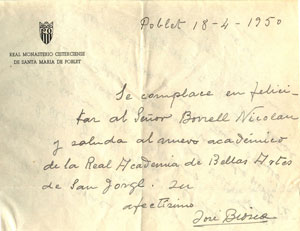 Poblet 18-4-1950
REAL MONASTERIO CISTERCIENSE
DE SANTA MARIA DE POBLET
Se complace en felici-
tar al Señor Borrell Nicolau
y saluda al nuevo académico
de la Real Academia de Bellas Artes
de San Jorge. Su
afectísimo
José